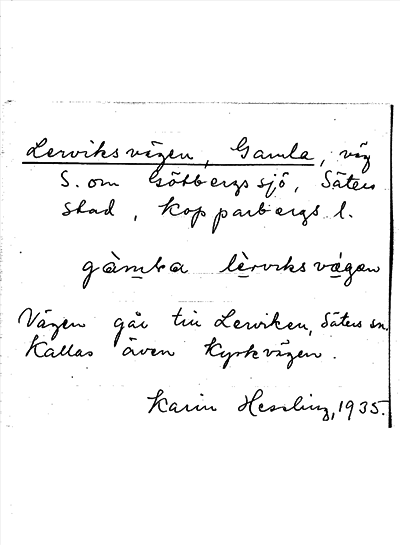 Lerviksvägen, Gamla, väg
S. om Götbergssjö, Säters
stad, Kopparbergs l.
gàmba lèrviksvägen
Vägen går till Lerviken, Säters sn.
Kallas även Kyrkvägen.
Karin Hessling, 1935.